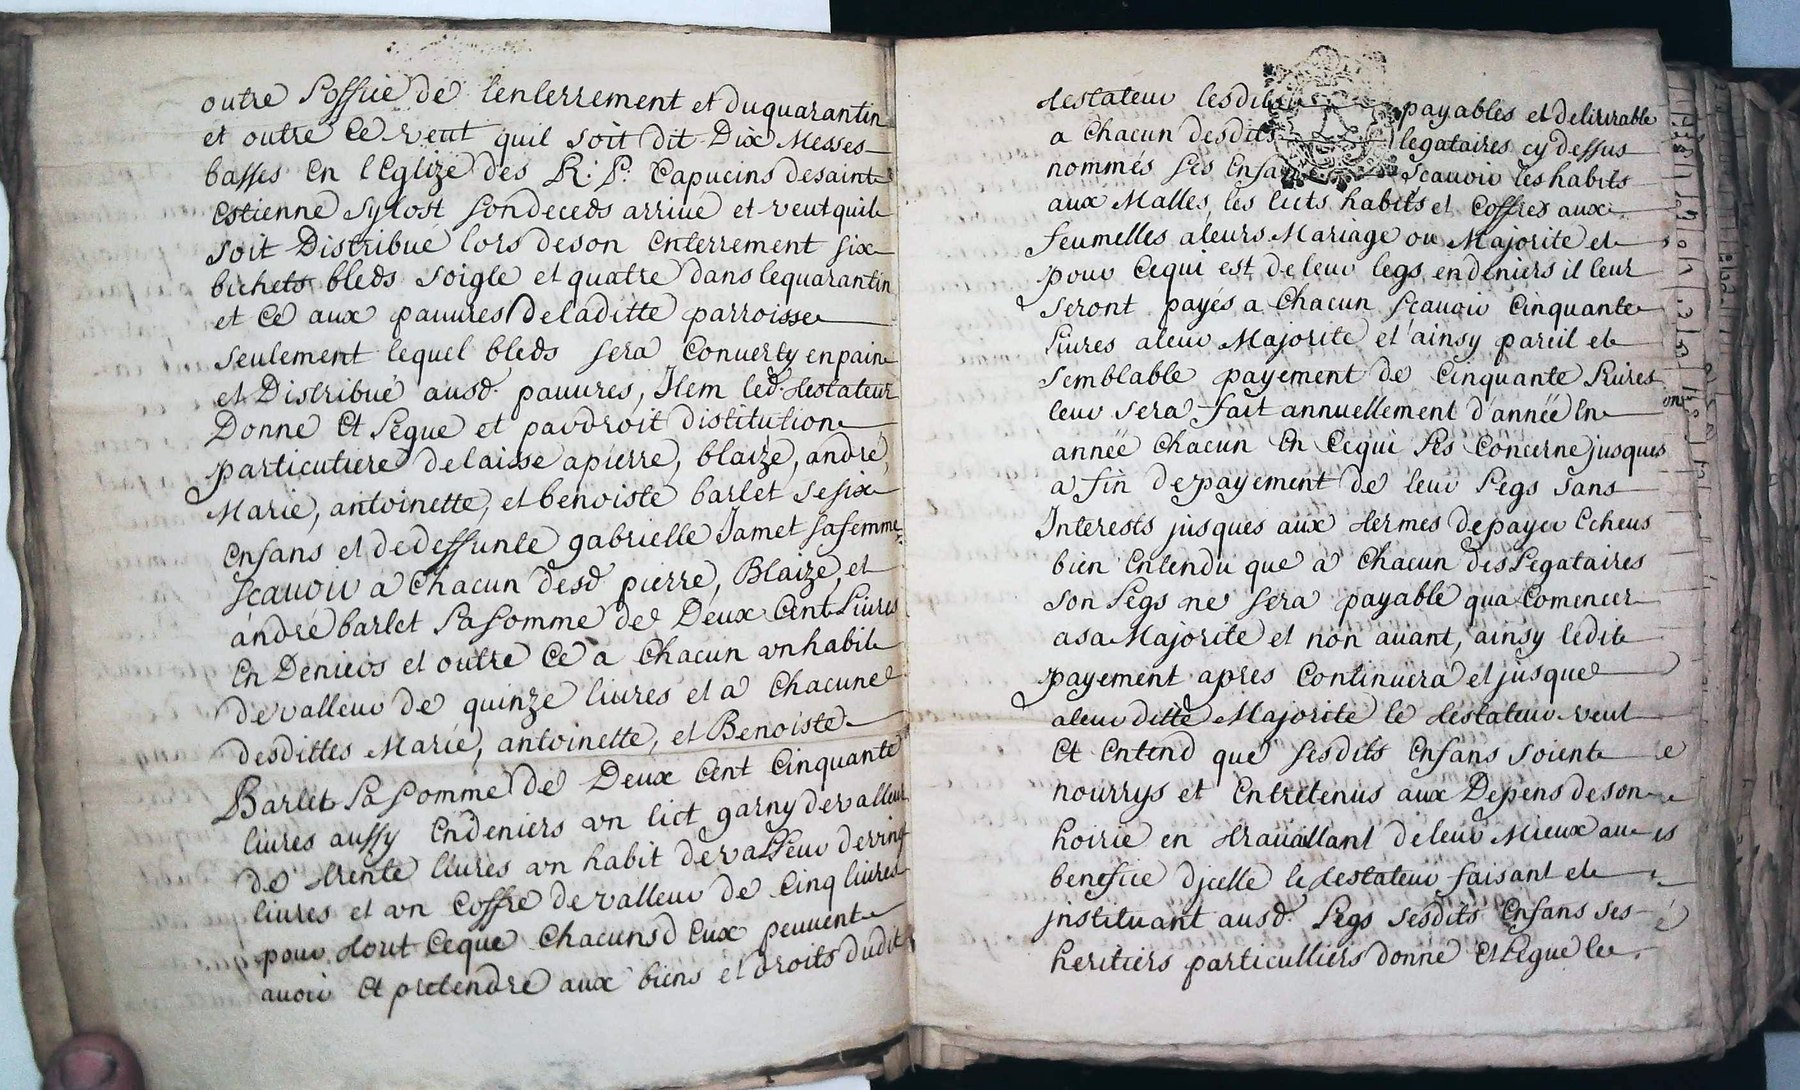 outre Loffice de lenterrement et du quarantin
et outre ce veut quil soit dit Dix Messes
basses En l Eglize des R. P. Capucins desaint
Estienne sytost sondeceds arrive et veut quil
soit Distribué lors deson Enterrement six
bichets bleds soigle et quatre dans lequarantin
et Ce aux pauures deladitte parroisse
seulement lequel bleds sera Conuerty enpain
et Distribué ausd. pauures, Item led. testateur
Donne Et Legue et pardroit distitution
particuliere delaisse apierre, blaize, andré,
Marie, antoinette, et benoiste barlet sesix
Enfans et dedeffunte gabrielle Jamet safemme
Scauoir a Chacun desd. pierre, Blaize, et
andré barlet La somme de Deux Cent Liures
En Deniers et outre Ce a Chacun vn habit
devalleur de quinze liures et a Chacune
desdittes Marie, antoinette, et Benoiste
Barlet La Somme de Deux Cent Cinquante
liures aussy Endeniers vn lict garny devalleur
de trente liures vn habit devalleur devingt
liures et vn Coffre devalleur de Cinq liures
pour tout Ceque Chacuns d Eux peuuent
auoir Et pretendre aux biens et droits dudit
testateur lesdits payables et deliurable
a Chacun desdits legataires cy dessus
nommés ses Enfans Scauoir les habits
aux Malles, les licts habits et Coffres aux
feumelles aleurs Mariage ou Majorite et
pour Cequi est deleur legs endeniers il leur
seront payés a Chacun Scauoir Cinquante
Liures aleur Majorite et ainsy pareil et
semblable payement de Cinquante Liures
leur sera fait annuellement d'année En
année Chacun En Cequi Les Concerne jusques
a fin depayement de leur Legs sans
Interests jusques aux termes depayer Echeus
bien Entendu que a Chacun des Legataires
son Legs ne sera payable qua Comencer
asa Majorite et non auant, ainsy ledit
payement apres Continuera et jusque
aleur ditte Majorite le testateur veut
Et Entend que sesdits Enfans soient
nourrys et Entretenus aux Depens deson
hoirie en trauaillant deleur Mieux au
benefice djcelle le testateur faisant et
jnstituant ausd. Legs sesdits Enfans ses
heritiers particulliers donne Et Legue le